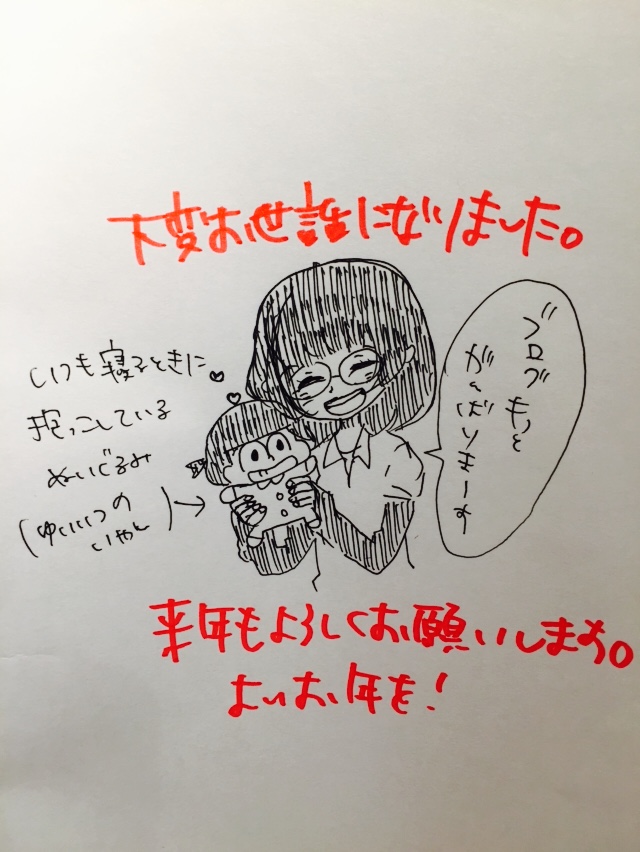 大変お世話になりました。
ブログもっと
がんばりまーす
いつも寝るときに
抱っこしている
ぬいぐるみ
(ゆいいつの
いやし)→
来年もよろしくお願いします。
よいお年を!